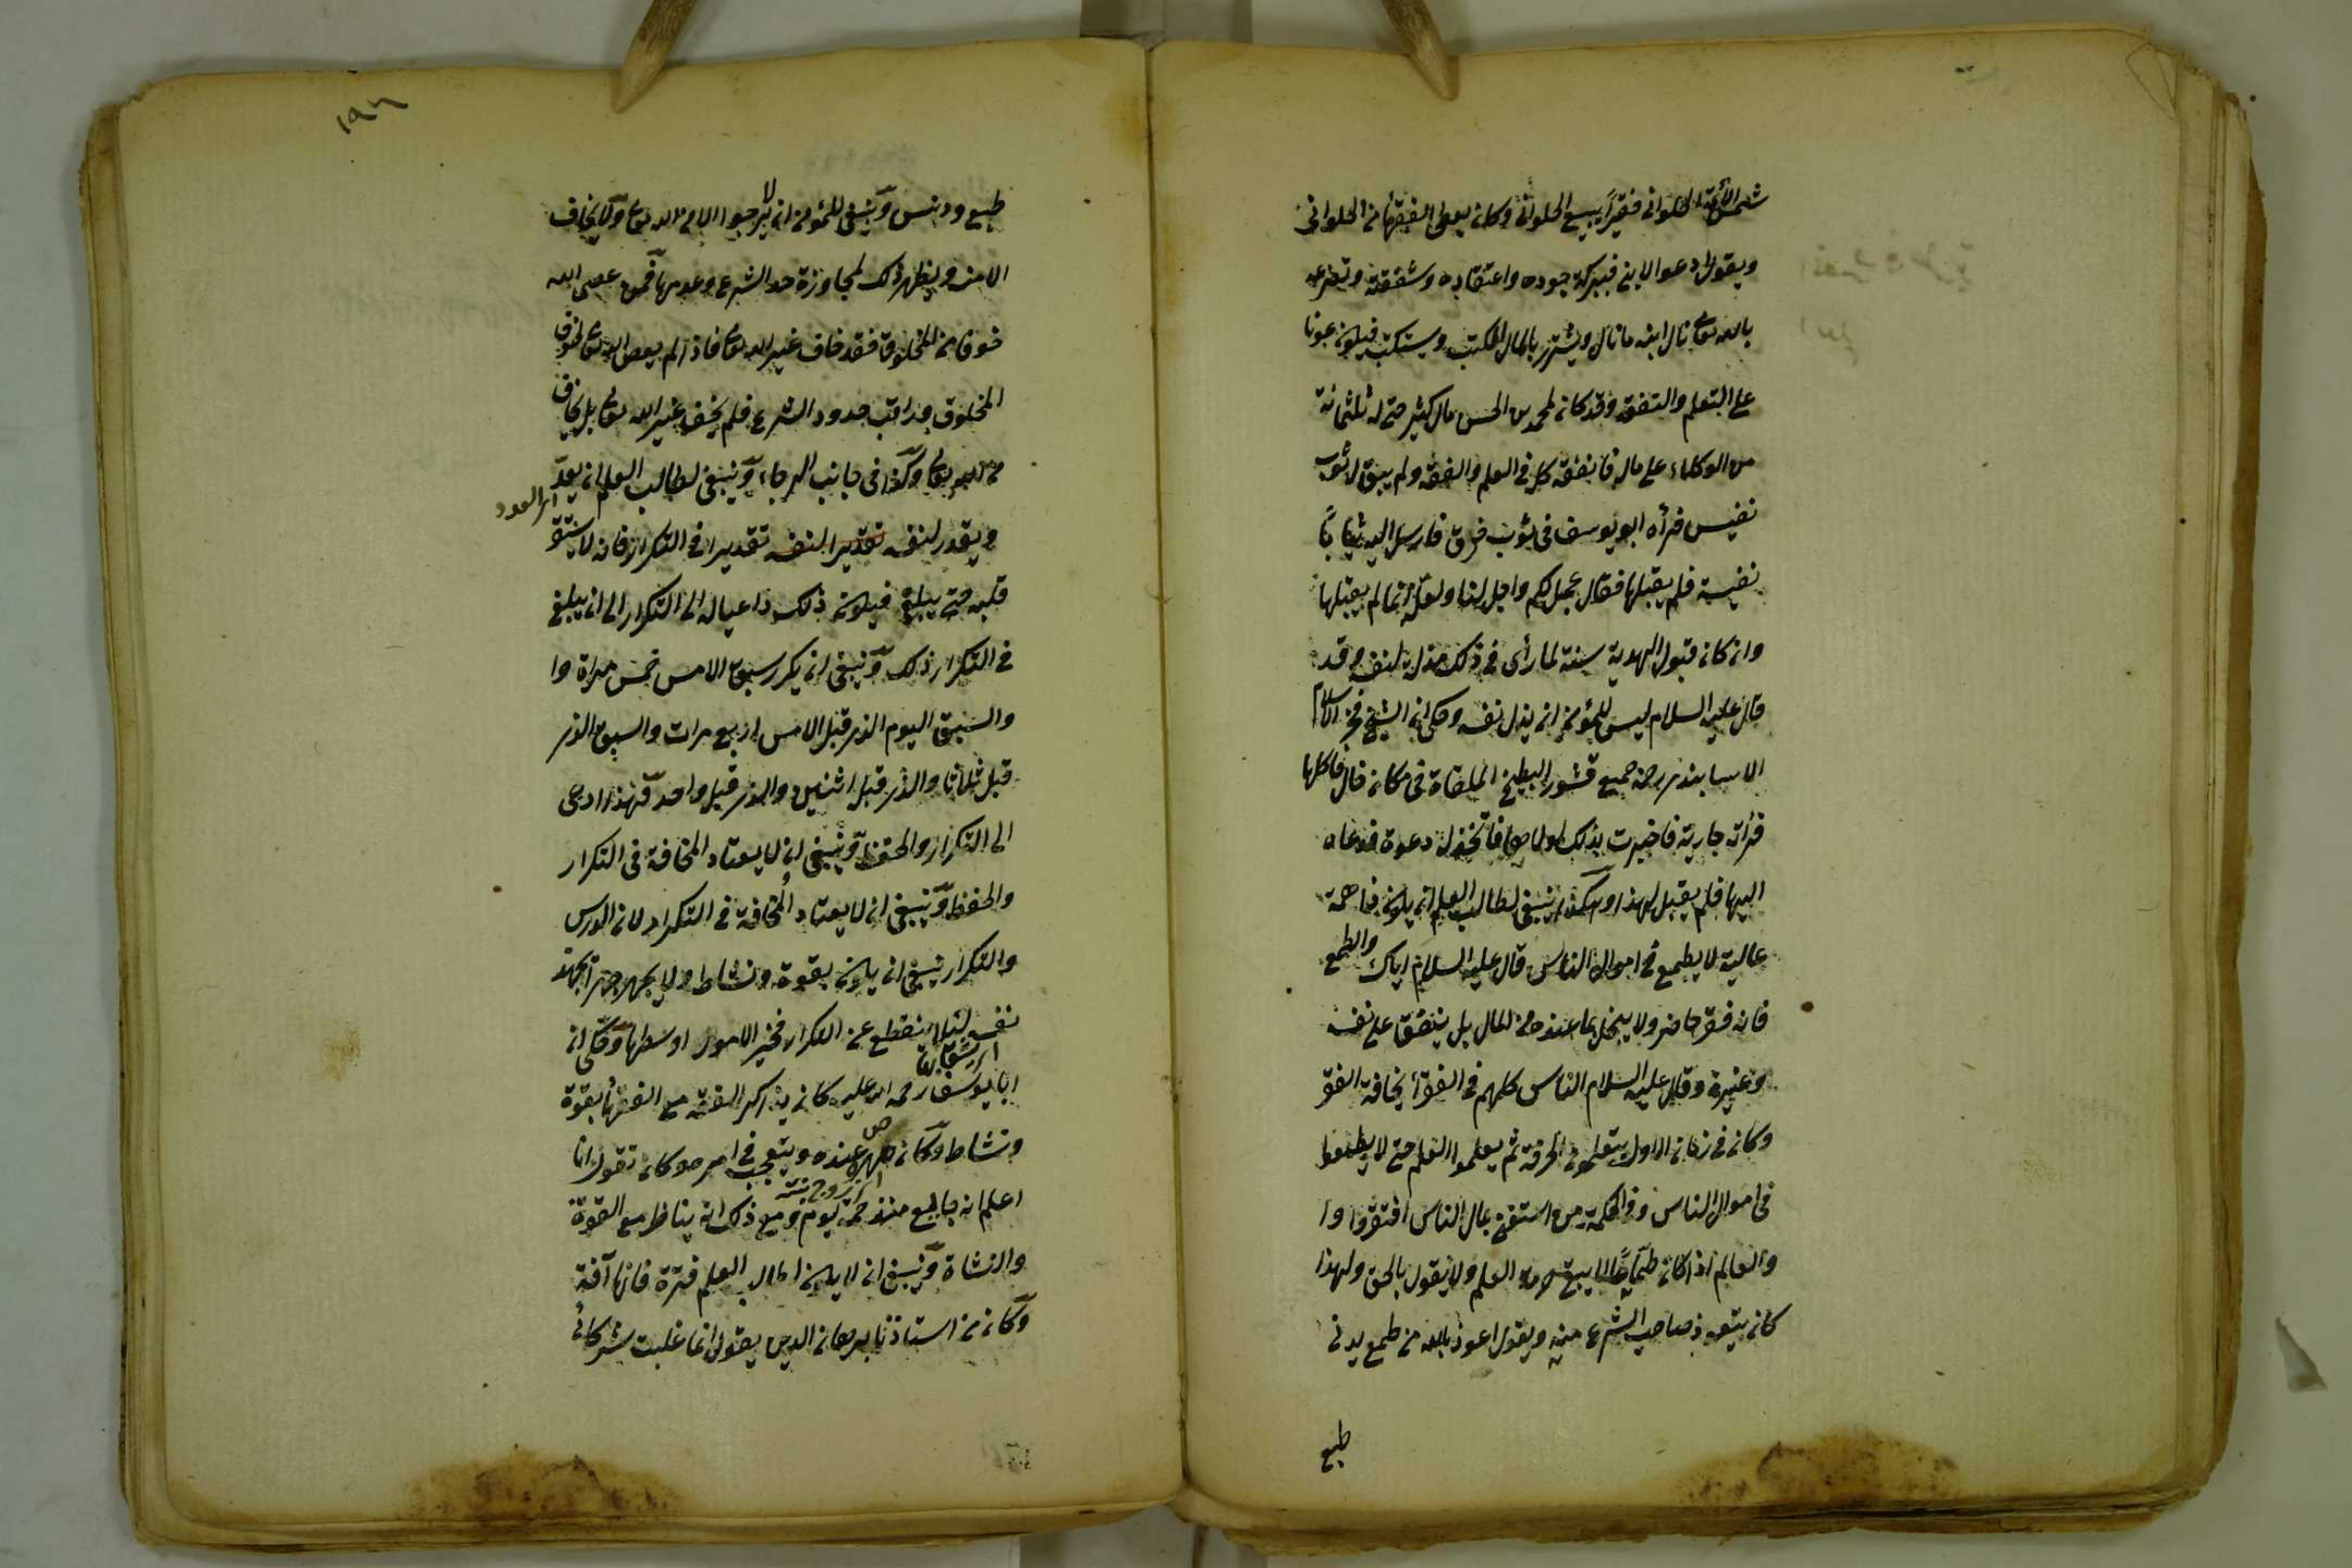 شمس الأئمة الحلوانى فقيرا يبيع الحلواى وكان يعطى الفقهاء من الحلوانى
ويقول ادعوا لابنى فببركة جوده واعتقاده وشفقته وتضرعه
بالله تعالى نال ابنه ما نال ويشترى بالمال الكتب ويستكتب فيكون عونا
على التعلم والتفقه وقد كان لمحمد بن الحسن مال كثير حتى له ثلثمائة
من الوكلاء على ماله فانفقه كله فى العلم والفقه ولم يبق له ثوب
نفيس فرأه ابو يوسف فى ثوب خرق فارسل اليه ثيابا
نفيسة فلم يقبلها فقال عجل لكم واجل لنا ولعله انما لم يقبلها
وان كان قبول الهدية سنة لما رأى فى ذلك مذلة لنفسه وقد
قال عليه السلام ليس للمؤمن ان يذل نفسه وحكى ان الشيخ فخر الاسلام
الاسابندى رحمه جميع قشور البطيخ الملقاة فى مكان خال فاكلها
فرأته جارية فاخبرت بذلك لمولاها فاتخذ له دعوة فدعاه
اليها فلم يقبل لهذا وهكذا ينبغى لطالب العلم ان يكون ذا همة
عالية لا يطمع فى اموال الناس قال عليه السلام اياك والطمع
فانه فقر حاضر ولا يبخل بما عنده من المال بل ينفق على نفسه
وغيره وقال عليه السلام الناس كلهم فى الفقر أ مخافة الفقر
وكان فى زمان الاول يتعلمون الحرفة ثم يعلموا العلم حتى لا يطمعوا
فى اموال الناس وفى الحكمة من استغنى بمال الناس افتقروا وا
والعالم اذا كان طماعا لا يبقى له حرمة العلم ولا يقول بالحق ولهذا
كان يتعوذ صاحب الشرع منه ويقول اعوذ بالله من طمع يدنى
طبع
١٩٦
طبع ودنس وينبغى للمؤمن ان لا يرجوا الا من الله تعالى ولا يخاف
الا منه ويظهر ذلك لمجاوزة حد الشرع وعدمها فمن عصى الله
خوفا من المخلوق فقد خاف غير الله تعالى فاذا لم يعص الله تعالى لخوف
المخلوق وراقب حدود الشرع فلم يخف غير الله تعالى بل يخاف
من الله تعالى وكذا فى جانب الرجاء وينبغى لطالب العلم ان يعد
اى العدد
ويقدر لنفسه تقدير النفسه تقديرا فى التكرار فانه لا يستقر
قلبه حتى يبلغ فيكون ذلك داعيا له الى التكرار الى ان يبلغ
فى التكرار ذلك وينبغى ان يكرر سبق الامس خمس مراة وا
والسبق اليوم الذى قبل الامس اربع مرات والسبق الذى
قبل ثلاثا والذى قبل اثنين والذى قبل واحد فهذا ادعى
الى التكرار والحفظ وينبغى ان لا يعتاد المخافة فى التكرار
والحفظ وينبغى ان لا يعتاد المخافة فى التكرار لان الدرس
والتكرار ينبغى ان يكون بقوة ونشاط ولا يجهر جهرا يجهد
نفسه لئلا ينقطع عن التكرار فخير الامور اوسطها وحكى ان
ابا يوسف رحمه الله عليه كان يذاكر الفقه مع الفقهاء بقوة
ونشاط وكان صهره عنده ويتعجب فى امره وكان تقول انا
اى زوج بنته
اعلم انه جايع منذ خمسة يوم ومع ذلك انه يناظر مع القوة
والنشاة وينبغى ان لا يكون لطالب العلم فترة فانها آفة
وكان من استاذنا برهان الدين يقول انما غلبت شركائى